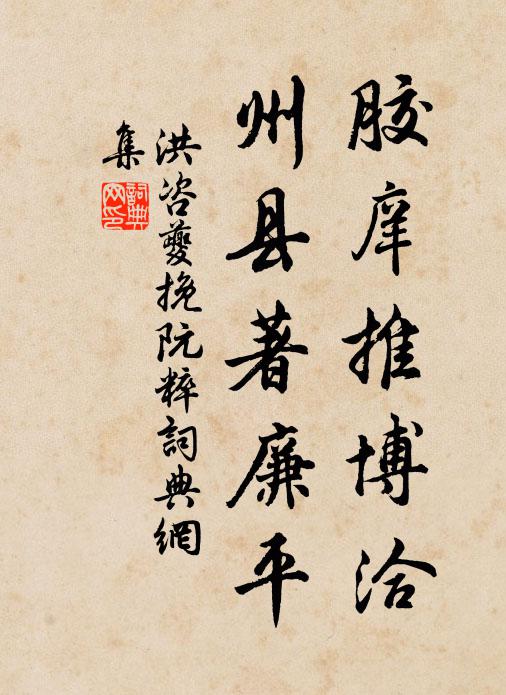 胶庠推博洽
州县著廉平
洪咨夔挽阮粹詞典網
集
詞典網印